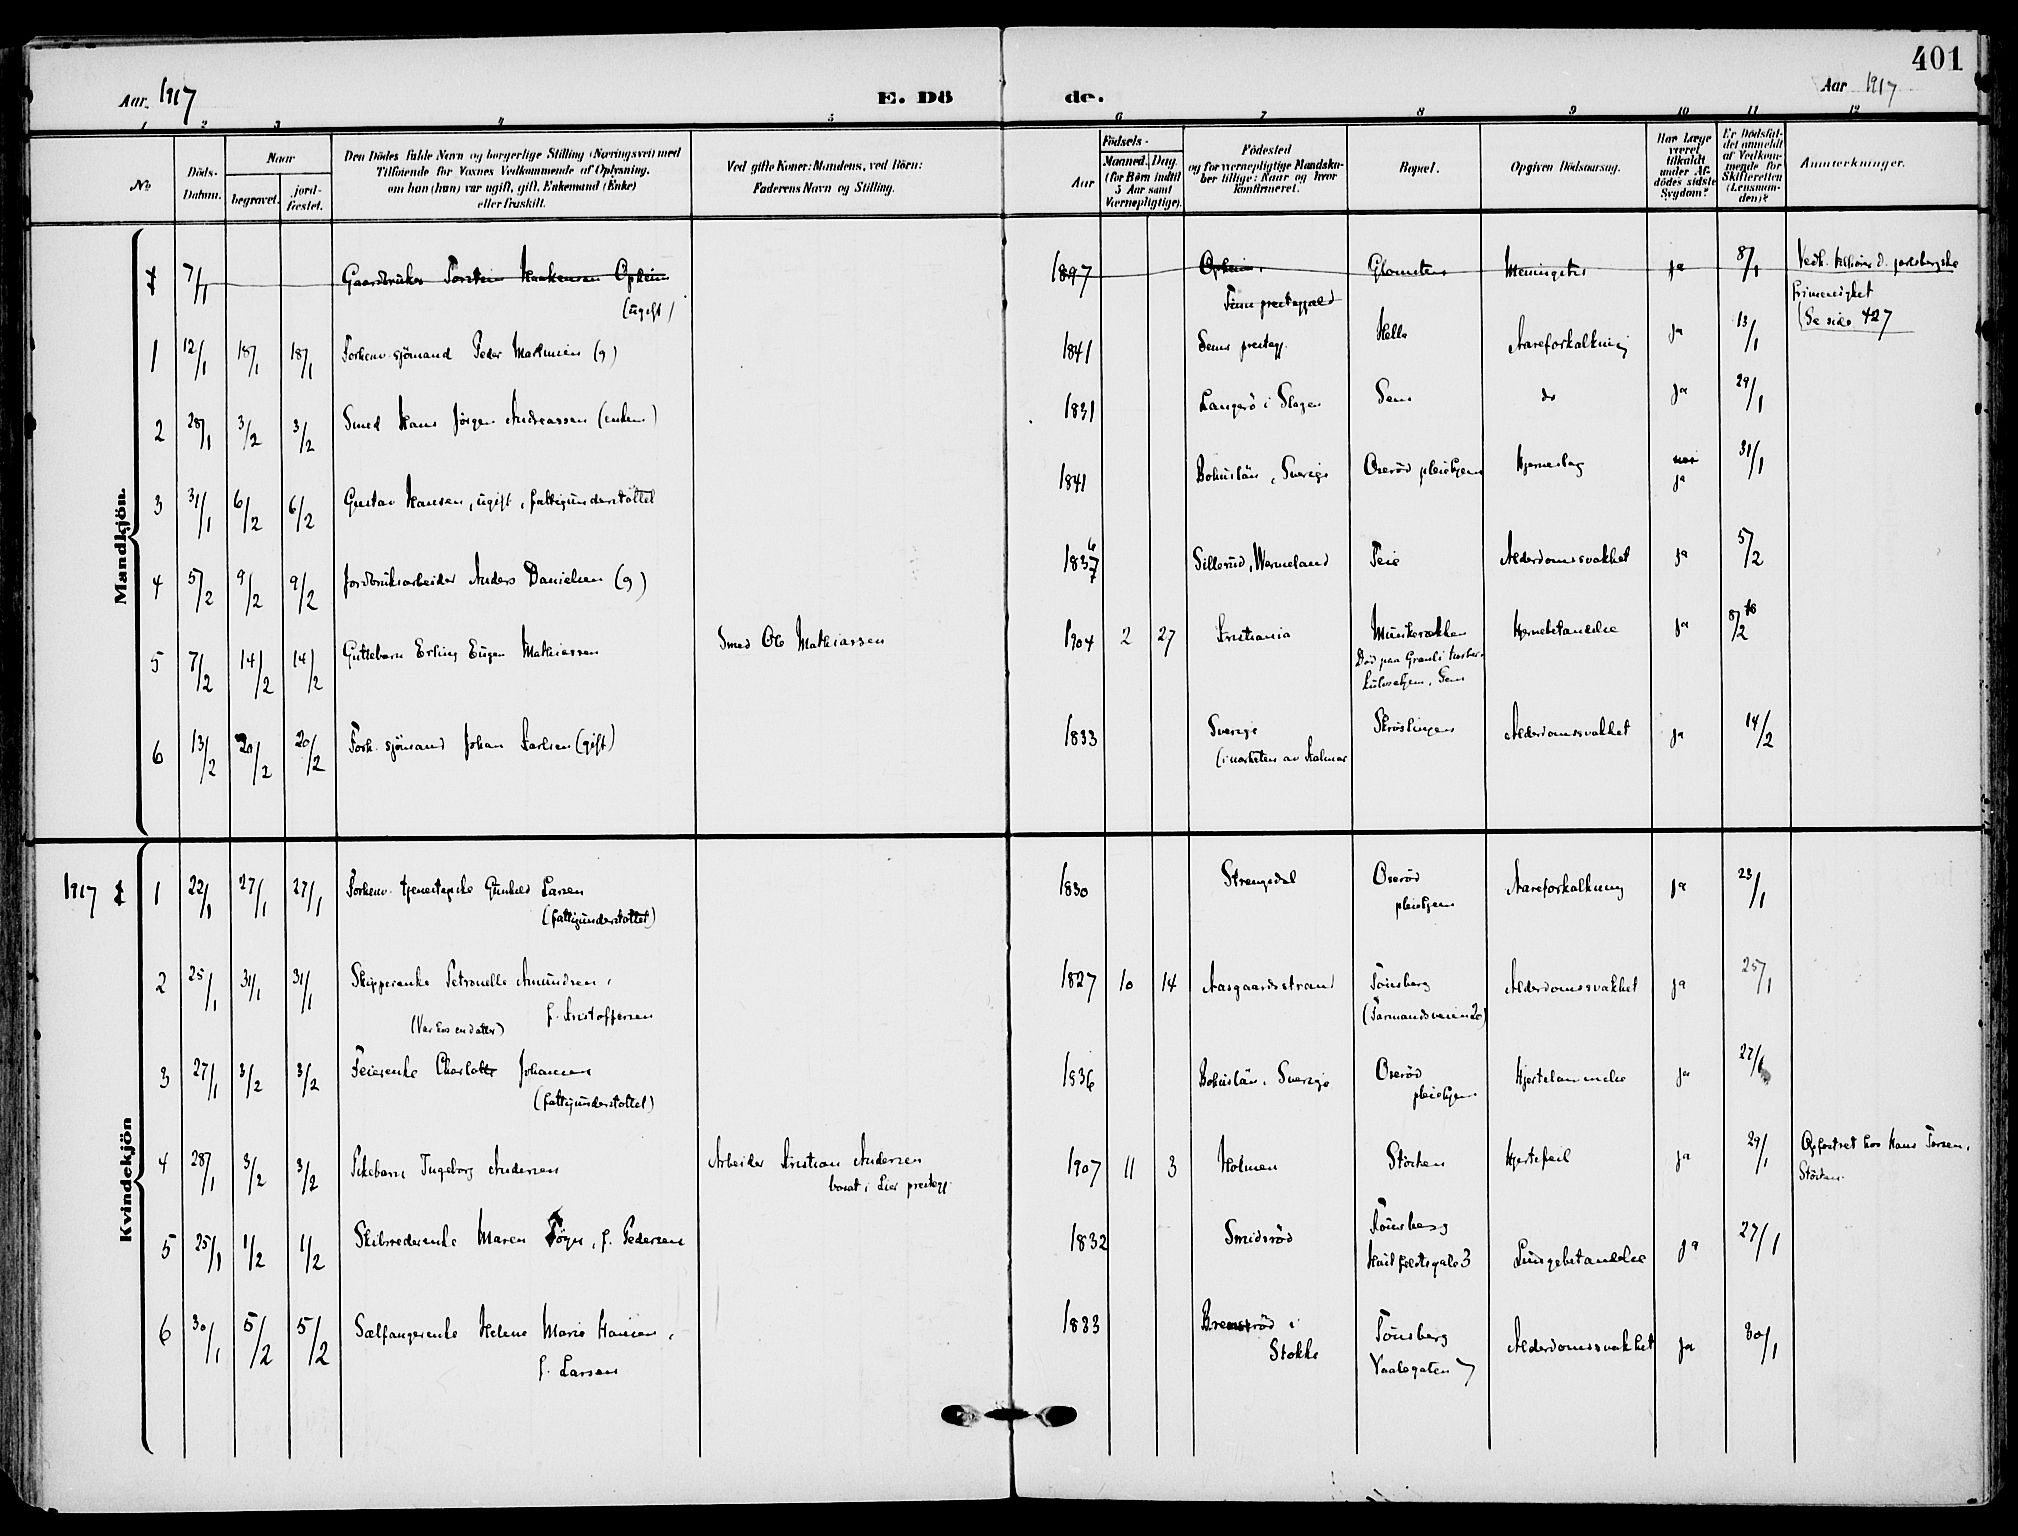 401
Aar 1917
E. Döde.
Aar 1917
1 2 3 4 5 6 7 8 9 10 11 12
No
Döds-Datum.
Naar
begravet.
jord-fæstet.
Den Dödes fulde Navn og borgerlige Stilling (Næringsvei) med
Tilföiende for Voxnes Vedkommende af Oplysning,
om han (hun) var ugift, gift, Enkemand (Enke)
eller fraskilt.
Ved gifte Koner: Mandens, ved Börn:
Faderens Navn og Stilling.
Födsels-
Aar
Maaned. Dag.
(for Börn indtil
5 Aar samt
Værnepligtige).
Födested
og for værnepligtige Mandska-
ber tillige: Naar og hvor
konfirmeret.
Bopæl.
Opgiven Dödsaarsag.
Har Læge
været
tilkaldt
under Af-
dödes sidste
Sygdom?
Er Dödsfal-
det anmeldt
af Vedkom-
mende for
Skifteretten
(Lensman-
den)?
Anmærkninger.
Mandkjön.
7/1 Gaardbruker Torstein Haakensen Opheim 1897 Opheim, Glomstein Meningitis ja 8/1
(ugift) Tinn prestegjeld
(Se side 427
1 12/1 18/1 18/1 Forhenv. sjömand Peder Martinsen (g) 1841 Sems prestegj. Hella Aareforkalkning ja 13/1
2 28/1 3/2 3/2 Smed Hans Jörgen Andreassen (enkem) 1831 Langerö i Slagen Sem do ja 29/1
3 31/1 6/2 6/2 Gustav Hansen, ugift, fattigunderstöttet 1841 Bohuslän, Sverige Oseröd pleiehjem Hjerneslag nei ja 31/1
4 5/2 9/2 9/2 Jordbruksarbeider Anders Danielsen (g) 1836 Sillerud, Wermeland Teie Alderdomssvakhet ja 5/2
5 7/2 14/2 14/2 Guttebarn Erling Eugen Mathiassen Smed Ole Mathiassen 1904 2 27 Kristiania Hjernebetændelse ja 8/2
Död paa Granli tuber-
kulosehjem, Sem
6 13/2 20/2 20/2 Forh. sjömand Johan Karlsen (gift) 1833 Sverige Alderdomssvakhet ja 14/2
(i nærheten av Kalmar
Kvindekjön
1917
1 22/1 27/1 27/1 Forhenv. tjenestepike Gunhild Larsen 1830 Strengsdal Oseröd Aareforkalkning ja 23/1
(fattigunderstöttet) pleiehjem
2 25/1 31/1 31/1 Skipperenke Petronelle Amundsen, 1827 10 14 Aasgaardsstrand Tönsberg Alderdomssvakhet ja 25/1
f. Kristoffersen (Farmandsveien 20)
(Var hos en datter)
3 27/1 3/2 3/2 Feierenke Charlotte Johansen 1836 Bohuslän, Sverige Oseröd Hjertelammelse ja 27/1
(fattigunderstöttet) pleiehjem
4 28/1 3/2 3/2 Pikebarn Ingeborg Andersen Arbeider Kristian Andersen 1907 11 3 Holmen Störten Hjertefeil ja 29/1 Opfostret hos Hans Torsen,
bosat i Lier prestegj. Störten.
5 25/1 1/2 1/2 Skibsrederenke Maren Föyn, f. Pedersen 1832 Smidsröd Tönsberg Lungebetændelse ja 27/1
Huitfeldtsgate 3
6 30/1 5/2 5/2 Sælfangerenke Helene Marie Hansen, 1833 Bremsröd i Tönsberg Alderdomssvakhet ja 30/1
f. Larsen Stokke Vaalegaten 7